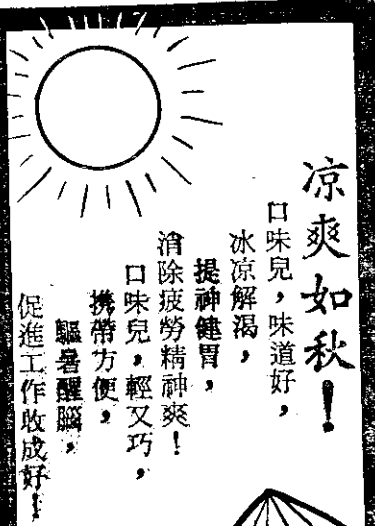 凉爽如秋！
口味兒，味道好，
冰凉解渴，
提神健胃，
消除疲勞精神爽！
口味兒，輕又巧，
携帶方便，
驅暑醒腦，
促進工作收成好！